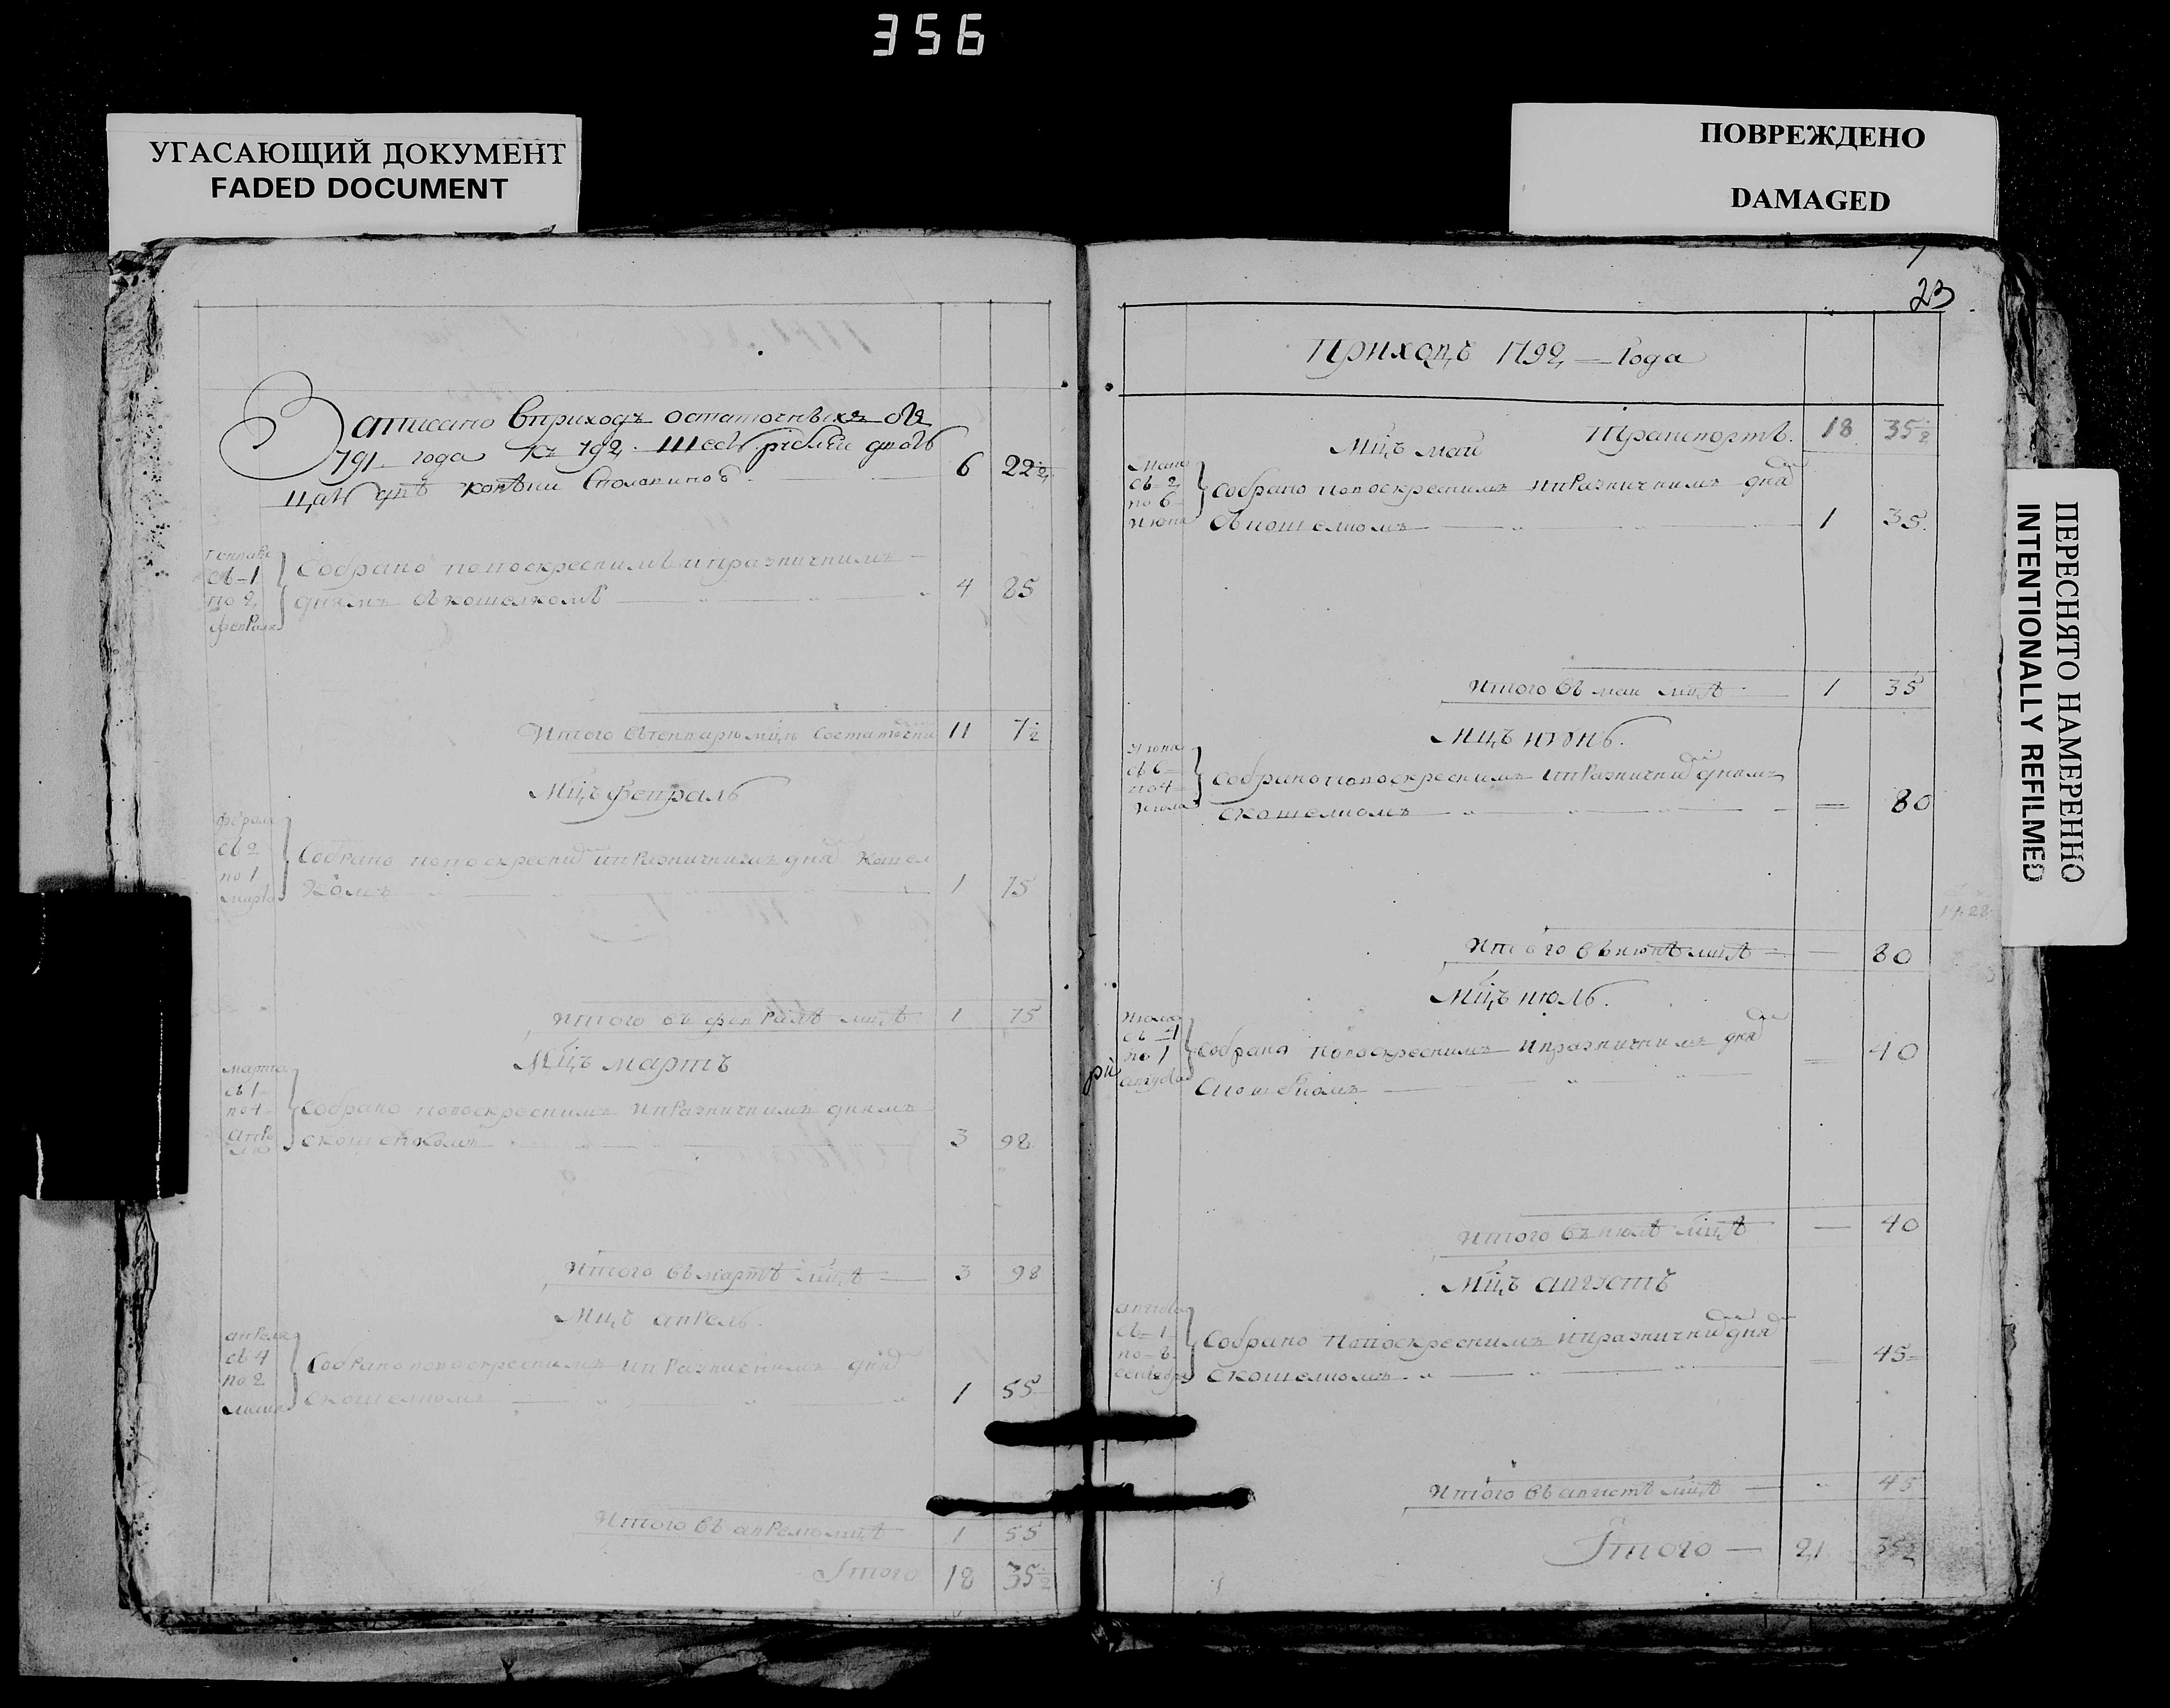 356
УГАСАЮЩИЙ ДОКУМЕНТ
FADED DOCUMENT
ПОВРЕЖДЕНО
DAMAGED
ПЕРЕСНЯТО НАМЕРЕННО
INTENTIONALLY REFILMED
Записано вприходъ остаточныхъ отъ
791 года къ 792 шесть рублей двать
цать двѣ копѣики сполавиною 6 22 1/2
съ 1
по 2
февраля
Собрано повоскреснимъ ипразничнимъ
днямъ съкошелкомъ 4 85
Итого въгенваре мцѣ состаточни 11 7 1/2
Мцъ февраль
съ 2
по 1
марта
Собрано повоскресни ипразничнимъ дня кошел
комъ 1 75
Итого въ февралѣ мцѣ 1 75
Мцъ мартъ
марта
съ 1
по 4
Собрано повоскреснимъ ипразничнимъ днямъ
скошелкомъ 3 98
Итого въ мартѣ мцѣ 3 98
Мцъ апрель
апреля
съ 4
по 2
маия
Собрано повоскреснимъ ипразничнимъ дня
скошелкомъ 1 55
Итого въ апрелю мцѣ 1 55
Итого 18 35 1/2
23
Приходъ 1792 года
Мцъ маи Транспортъ 18 35 1/2
съ 2
по 6
июня
Собрано повоскреснимъ ипразничнимъ дня
съкошелкомъ 1 35
Итого въ маи мцѣ 1 35
Мцъ июнь
июня
съ 6
по 4
июля
Собрано повоскреснимъ ипразнични днямъ
скошелкомъ — 80
Итого въ июнѣ мцѣ — 80
Мцъ июль
июля
съ 4
по 1
августа
Собрано повоскреснимъ ипразничнимъ дня
скошелкомъ — 40
Итого въ июлѣ мцѣ — 40
Мцъ августъ
августа
съ 1
по
Собрано повоскреснимъ ипразнични дня
скошелкомъ — 45
Итого въ августѣ мцѣ 45
Итого — 21 35 1/2